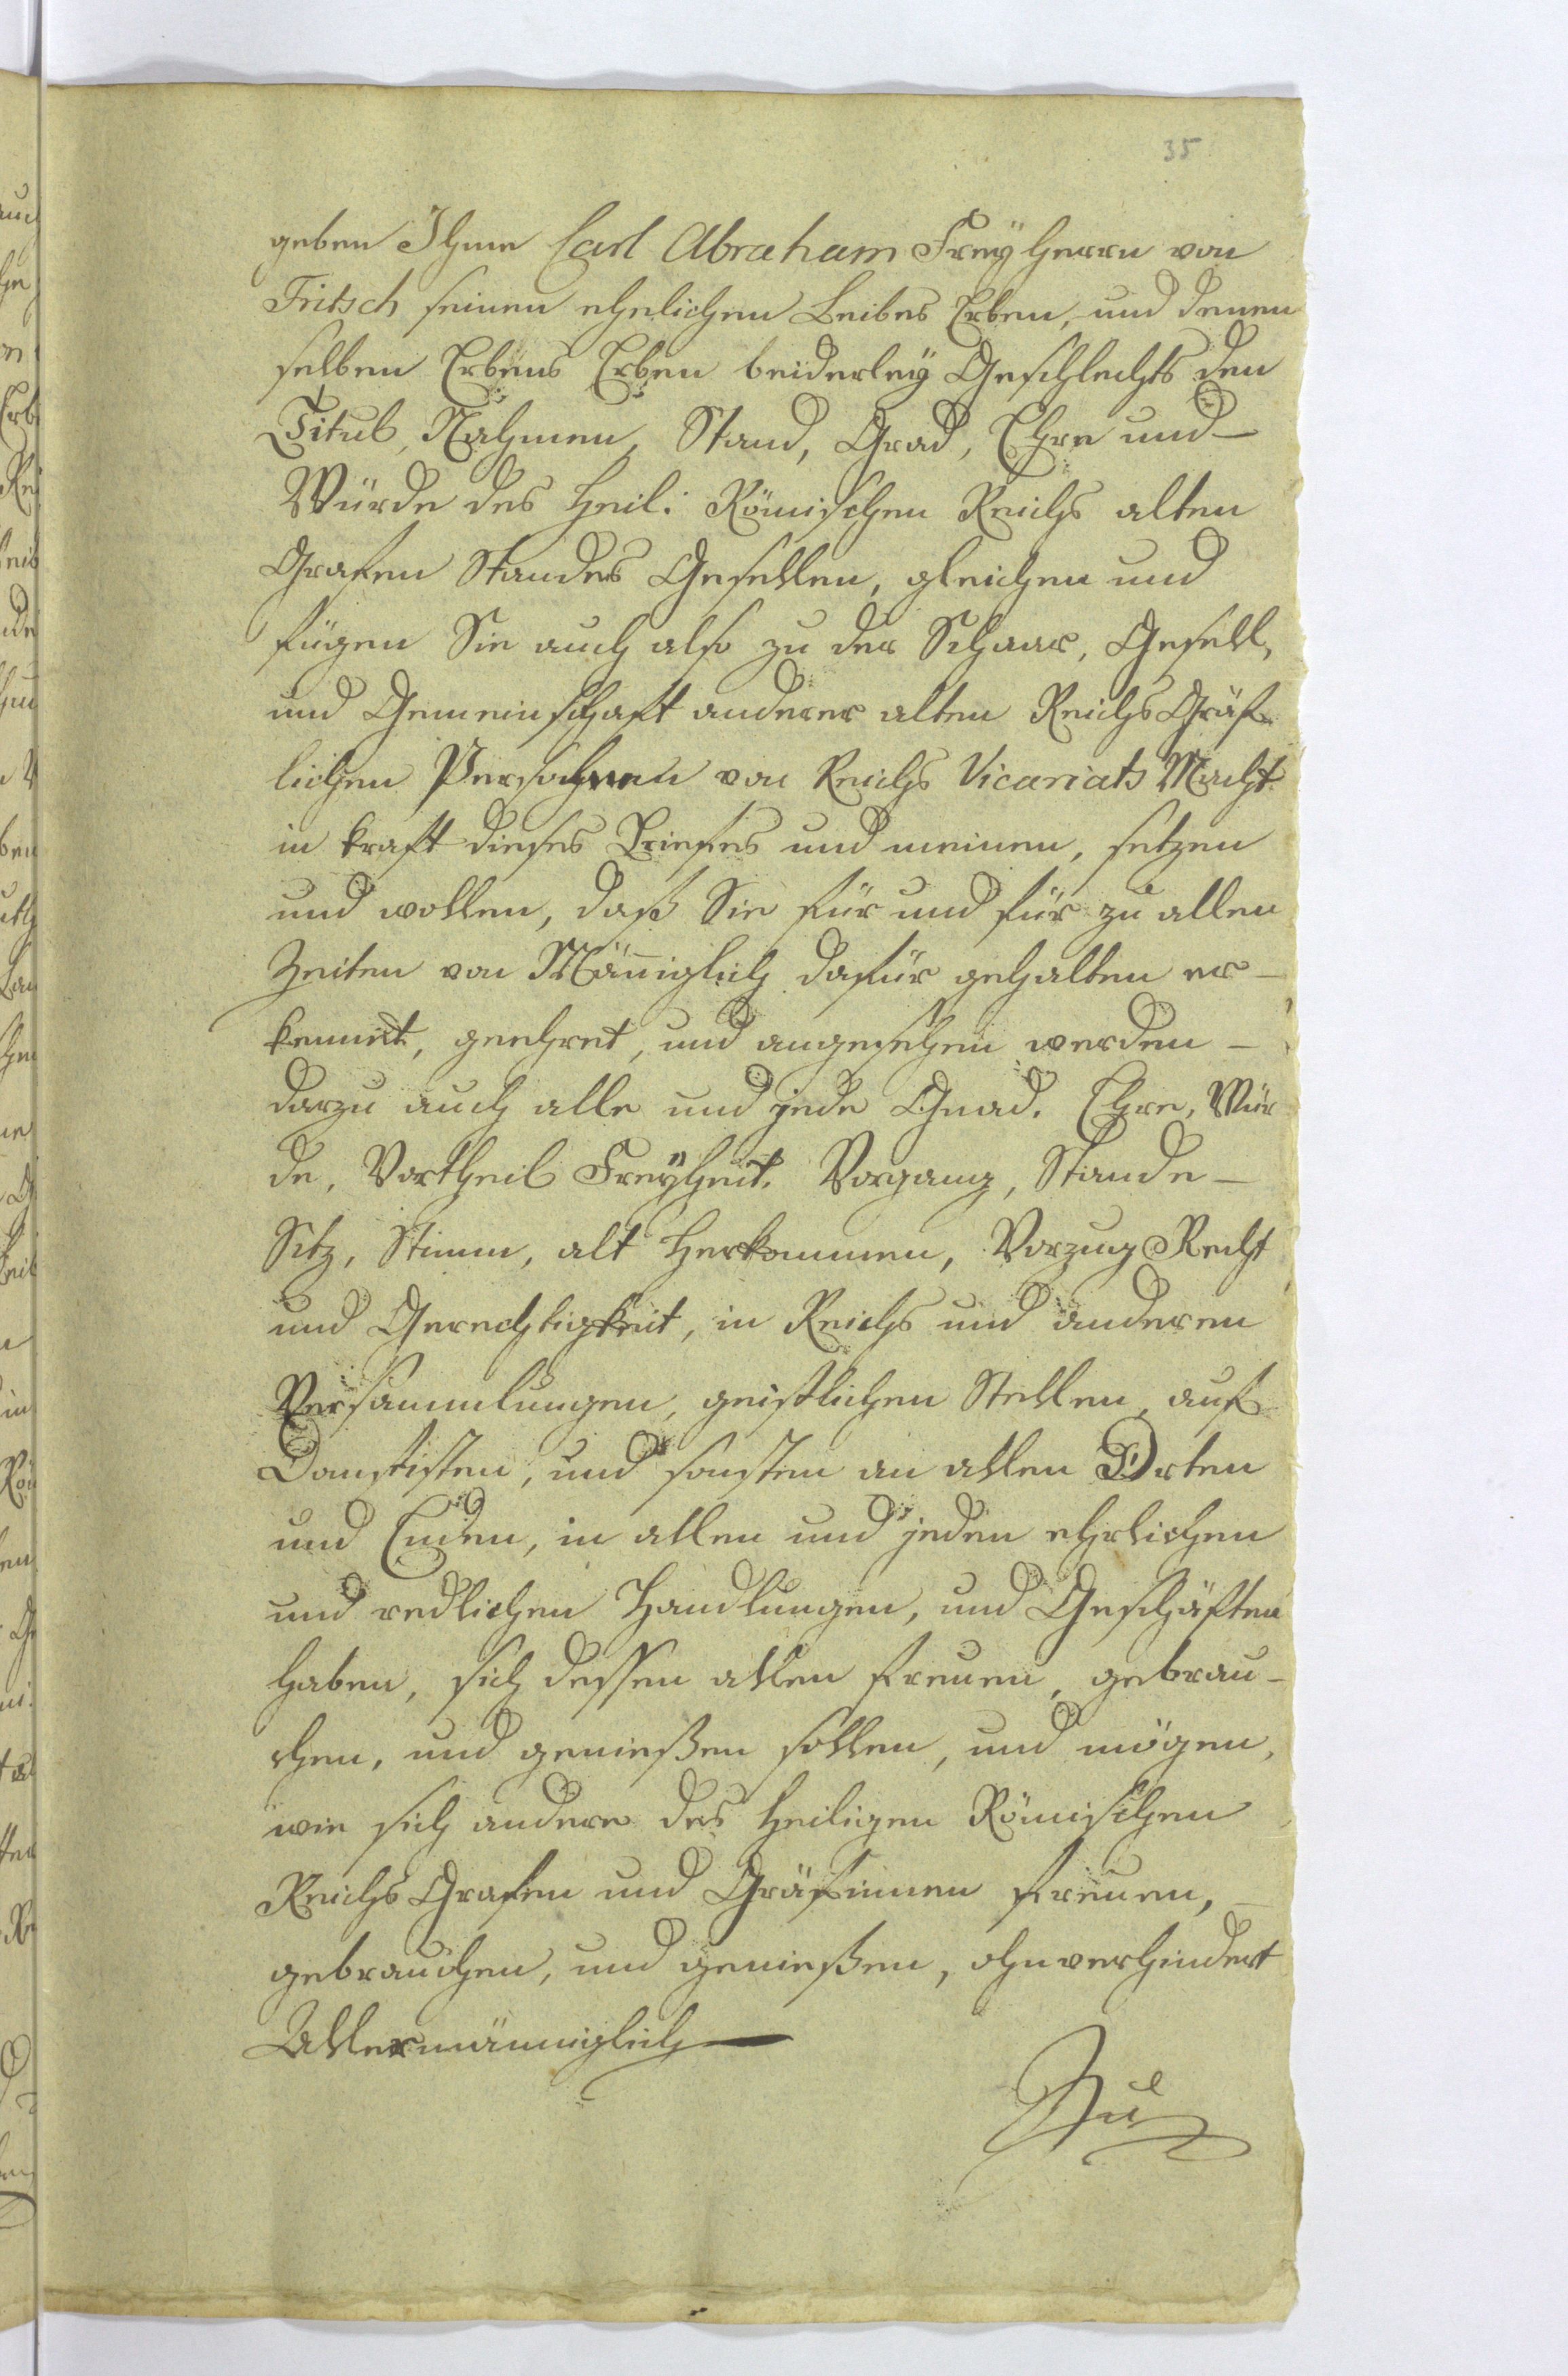 35
geben Ihme Carl Abraham Freyherrn von
Fritsch seinen ehelichen Leibes Erben, und denen
selben Erbens Erben beiderley Geschlechts den
Titul, Nahmen, Stand, Grad, Ehre und
Würde des heil: Römischen Reichs alten
Grafen Standes Gesellen, gleichen und
fügen Sie auch also zu der Schaar, Gesell,
und Gemeinschaft anderer alten Reichs Gräf
lichen Persohnen von Reichs Vicariats Macht
in kraft dieses Briefes und meinen, setzen
und wollen, daß Sie für und für zu allen
Zeiten von Mäniglich dafür gehalten er-
kennet, geehret, und angesehen werden -
darzu auch alle und jede Gnad. Ehre, Wür
de, Vortheil Freyheit. Vorgang, Stande -
Sitz, Stimm, alt herkommen, Vorzug Recht
und Gerechtigkeit, in Reichs und anderen
Versammlungen, geistlichen Stellen, auf
Domstiften, und sonsten an allen Orten
und Enden, in allen und jeden ehrlichen
und redlichen Handlungen, und Geschäften
haben, sich dessen allen freuen, gebrau-
chen, und genießen sollen, und mögen,
wie sich andere des heiligen Römischen
Reichs Grafen und Gräfinnen freuen, -
gebrauchen, und genießen, ohnverhindert
Allermänniglich